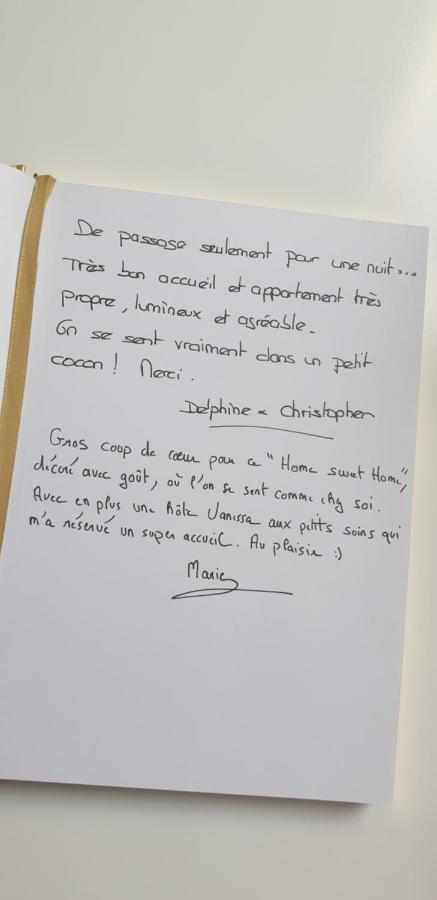 De passage seulement pour une nuit...
Très bon accueil et appartement très
propre, lumineux et agréable.
On se sent vraiment dans un petit
cocon ! Merci.
Delphine & Christopher
Gros coup de cœur pour ce "Home sweet Home",
décoré avec goût, où l'on se sent comme chez soi.
Avec en plus une hôte Vanessa aux petits soins qui
m'a réservé un super accueil. Au plaisir :)
Marie